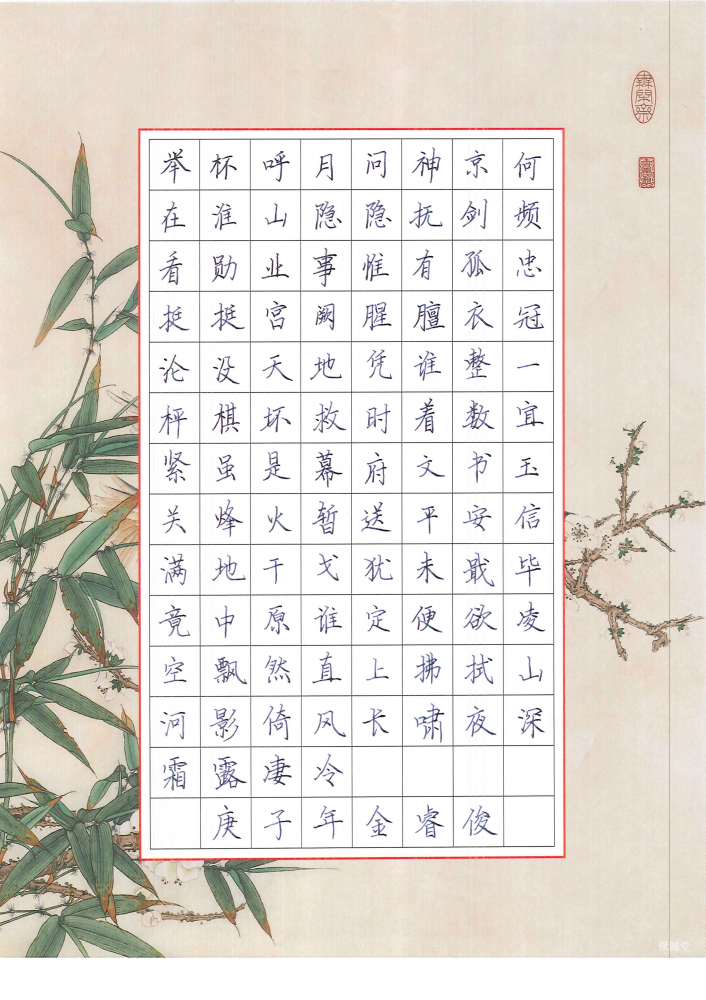 举杯呼月问神京何
在淮山隐隐抚剑频
看勋业事惟有孤忠
挺挺宫阙腥膻衣冠
沦没天地凭谁整一
枰棋坏救时着数宜
紧虽是幕府文书玉
关烽火暂送平安信
满地干戈犹未戢毕
竟中原谁定便欲凌
空飘然直上拂拭山
河影倚风长啸夜深
霜露凄冷
庚子年金睿俊